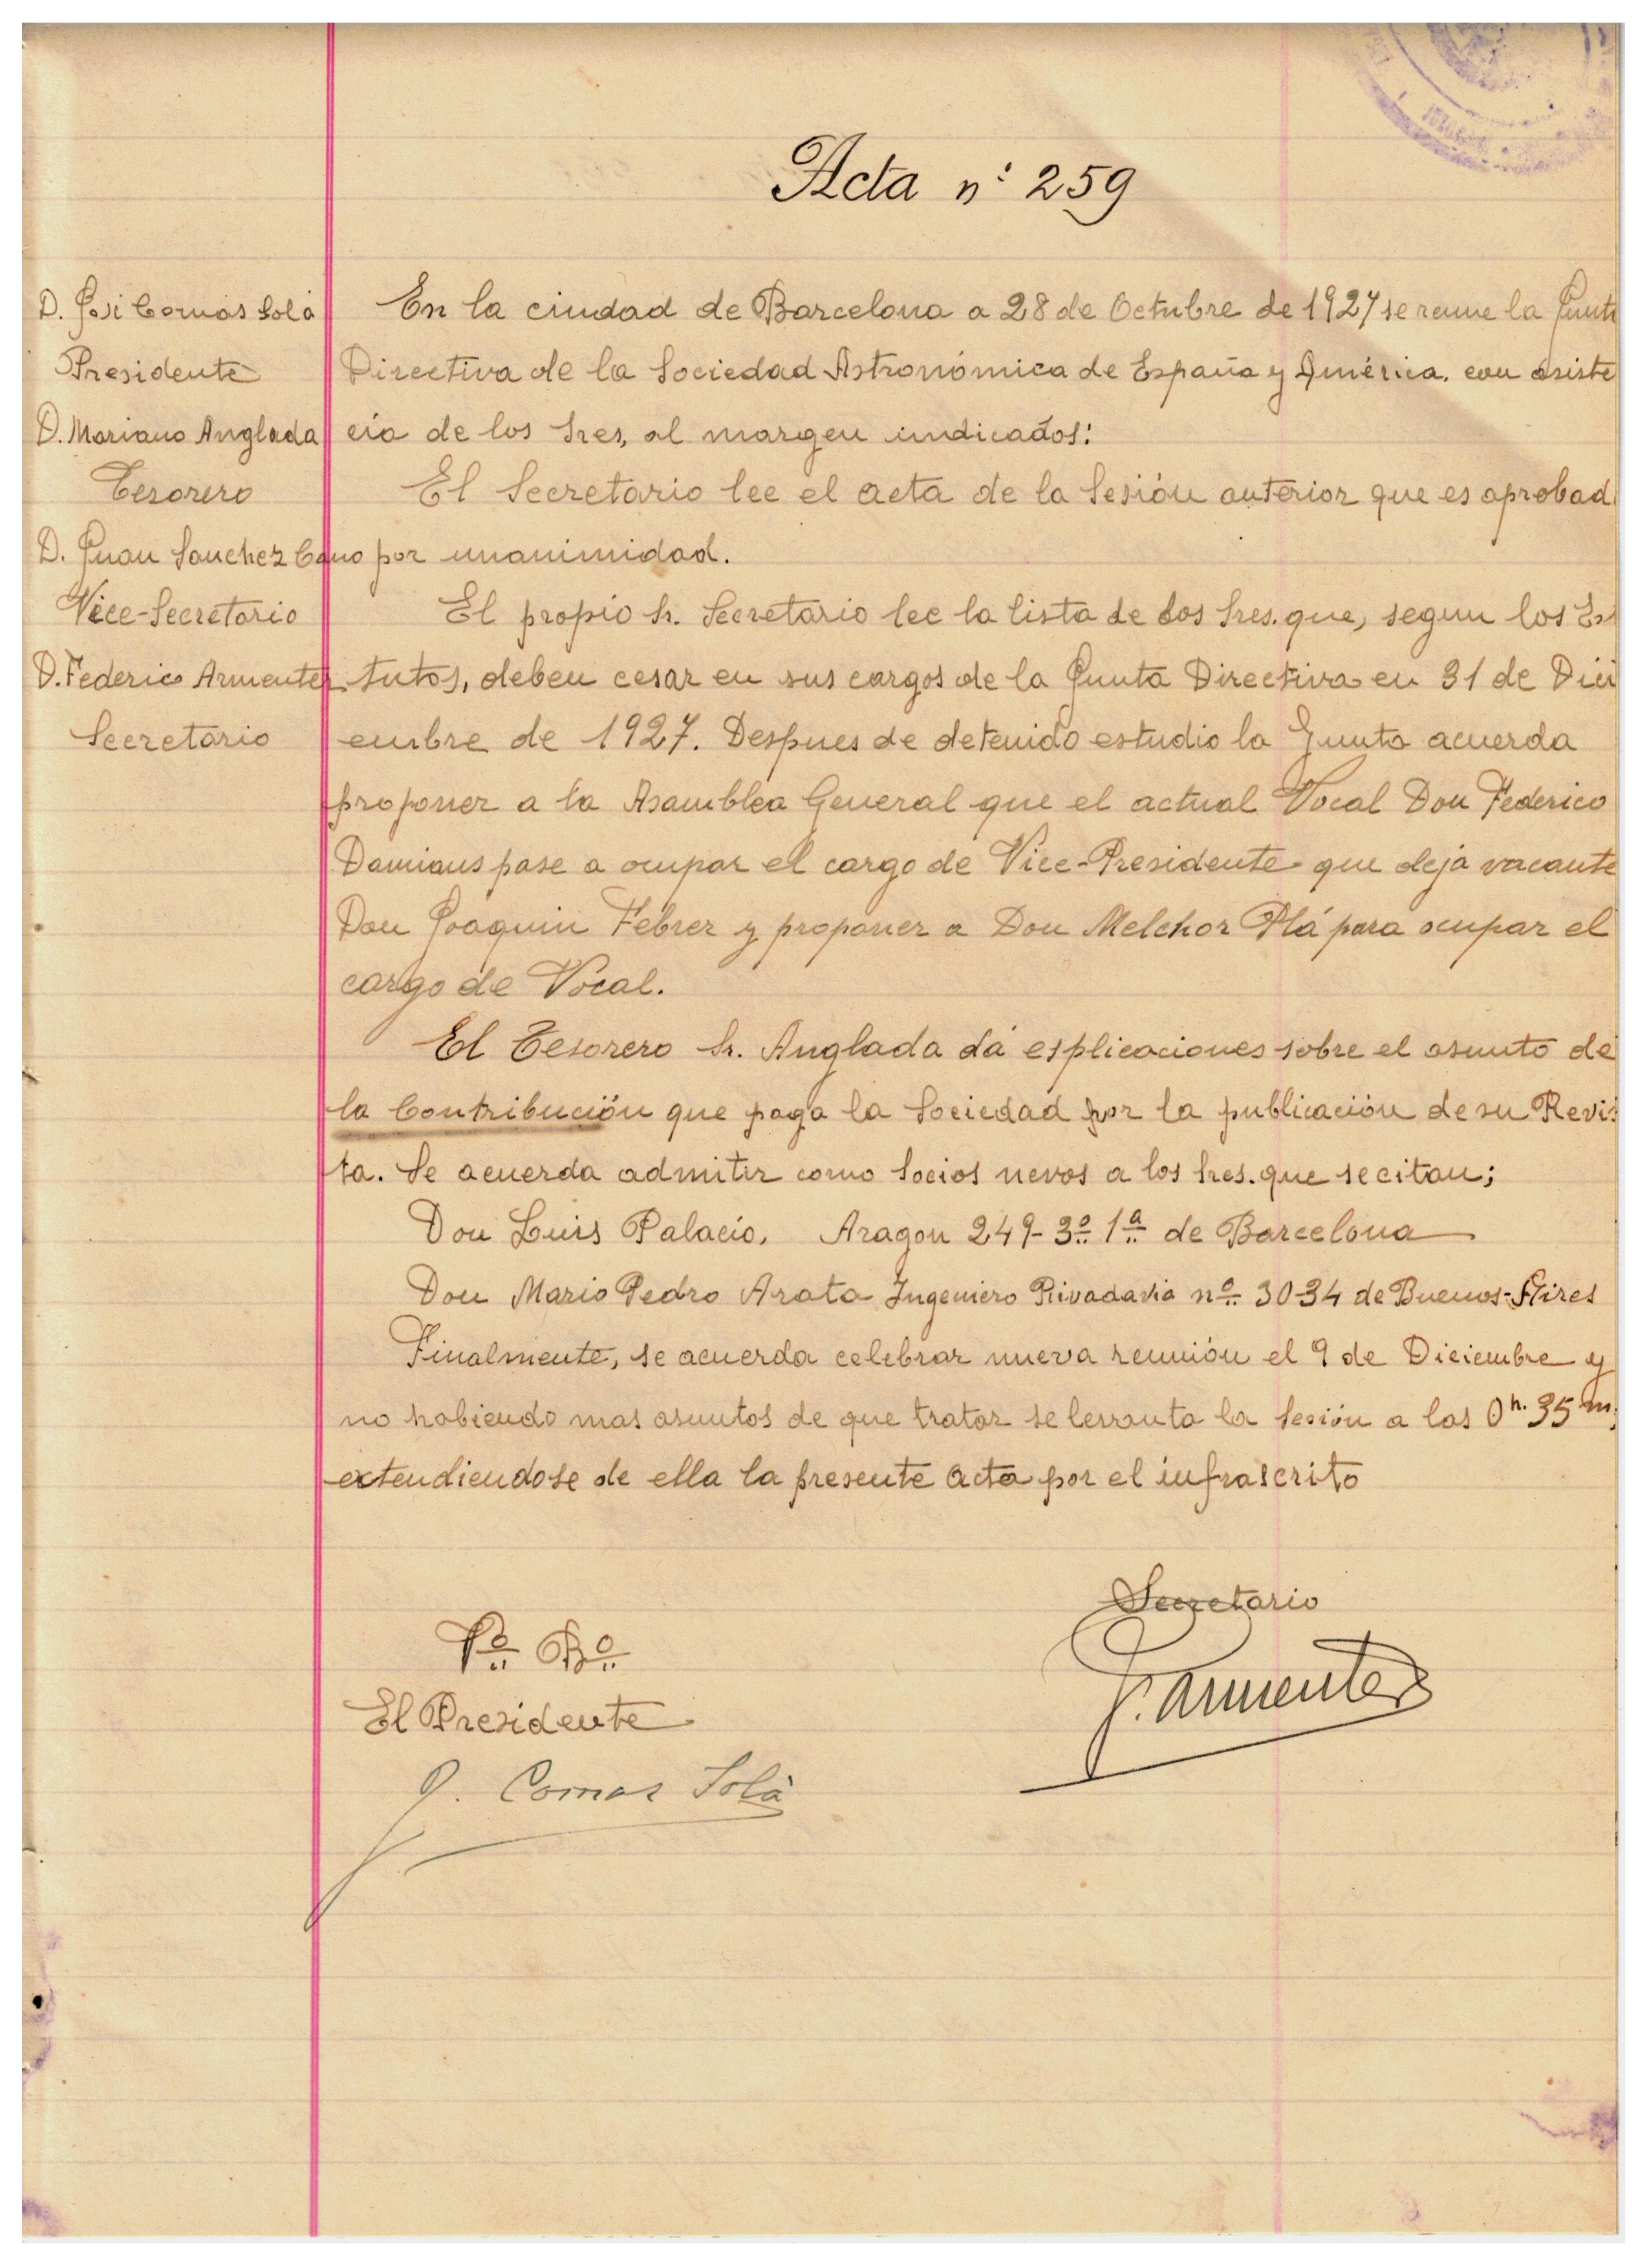 Acta nº 259
D. José Comas Solá
Presidente
D. Mariano Anglada
Tesorero
D. Juan Sanchez Cano
Vice-Secretario
D. Federico Armenter
Secretario
En la ciudad de Barcelona a 28 de Octubre de 1927 se reune la Junt
Directiva de la Sociedad Astronómica de España y América, con asiste
cia de los Sres, al margen indicados:
El Secretario lee el acta de la Sesión anterior que es aprobad
por unanimidad.
El propio Sr. Secretario lee la lista de los Sres. que, segun los Es
tutos, deben cesar en sus cargos de la Junta Directiva en 31 de Dici
embre de 1927. Despues de detenido estudio la Junta acuerda
proponer a la Asamblea General que el actual Vocal Don Federico
Damians pase a ocupar el cargo de Vice-Presidente que deja vacante
Don Joaquin Febrer y proponer a Don Melchor Plá para ocupar el
cargo de Vocal.
El Tesorero Sr. Anglada dá esplicaciones sobre el asunto de
la Contribución que paga la Sociedad por la publicación de su Revis
ta. Se acuerda admitir como Socios nevos a los Sres. que se citan;
Don Luis Palacio, Aragon 249-3º 1ª de Barcelona
Don Mario Pedro Arata Ingeniero Rivadavia nº 30-34 de Buenos-Aires
Finalmente, se acuerda celebrar nueva reunión el 9 de Diciembre y
no habiendo mas asuntos de que tratar se levanta la Sesión a las 0h. 35m,
extendiendose de ella la presente acta por el infrascrito
Secretario
F. Armenter
Vº Bº
El Presidente
J. Comas Solà